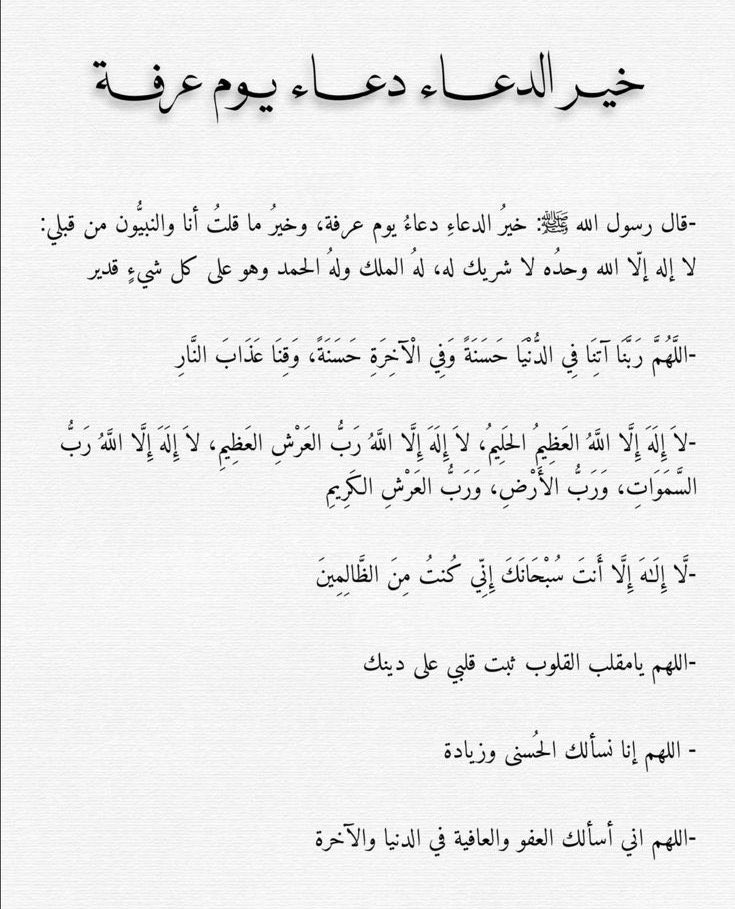 خير الدعاء دعاء يوم عرفة
-قال رسول الله ﷺ: خيرُ الدعاءِ دعاءُ يوم عرفة، وخيرُ ما قلتُ أنا والنبيُّون من قبلي:
لا إله إلّا الله وحدُه لا شريك له، لهُ الملك ولهُ الحمد وهو على كل شيءٍ قدير
-اللَّهُمَّ رَبَّنَا آتِنَا فِي الدُّنْيَا حَسَنَةً وَفِي الْآخِرَةِ حَسَنَةً، وَقِنَا عَذَابَ النَّارِ
-لاَ إِلَهَ إِلَّا اللَّهُ العَظِيمُ الحَلِيمُ، لاَ إِلَهَ إِلَّا اللَّهُ رَبُّ العَرْشِ العَظِيمِ، لاَ إِلَهَ إِلَّا اللَّهُ رَبُّ
السَّمَوَاتِ، وَرَبُّ الأَرْضِ، وَرَبُّ العَرْشِ الكَرِيمِ
-لَّا إِلَٰهَ إِلَّا أَنتَ سُبْحَانَكَ إِنِّي كُنتُ مِنَ الظَّالِمِينَ
-اللهم يامقلب القلوب ثبت قلبي على دينك
- اللهم إنا نسألك الحُسنى وزيادة
-اللهم اني أسألك العفو والعافية في الدنيا والآخرة